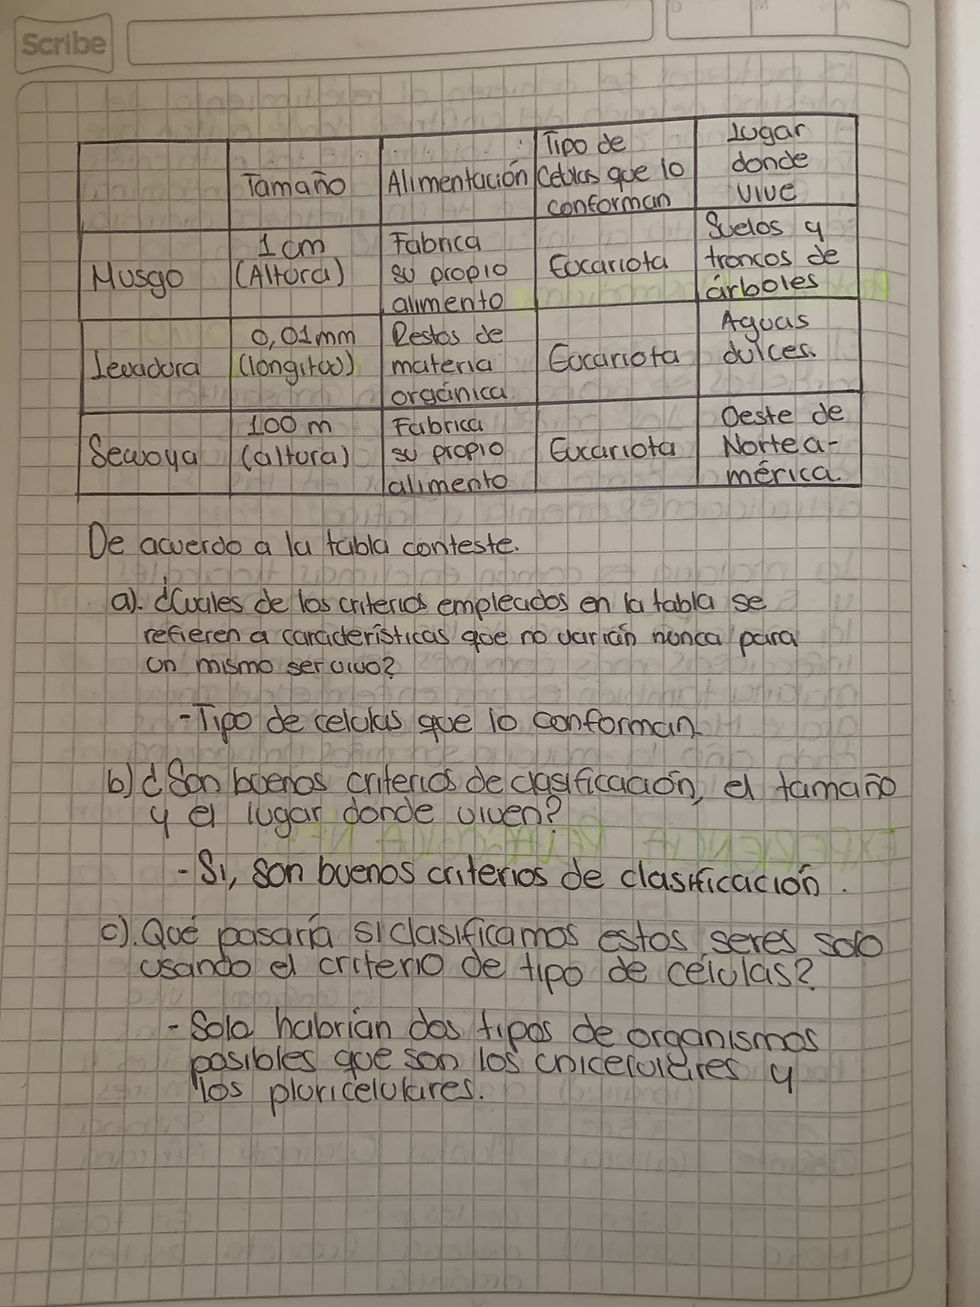 Scribe
D M A
Tamaño Alimentación Tipo de Celulas que lo conforman Lugar donde vive
Musgo 1 cm (Altura) Fabrica su propio alimento Eucariota Suelos y troncos de árboles
Levadura 0,01mm (longitud) Restos de materia orgánica. Eucariota Aguas dulces.
Sewoya 100 m (altura) Fabrica su propio alimento Eucariota Oeste de Nortea-mérica.
De acuerdo a la tabla conteste.
a). ¿Cuales de los criterios empleados en la tabla se
refieren a características que no varían nunca para
un mismo ser vivo?
-Tipo de celulas que lo conforman.
b) ¿Son buenos criterios de clasificación, el tamaño
y el lugar donde viven?
-Si, son buenos criterios de clasificación.
c). Qué pasaría si clasificamos estos seres solo
usando el criterio de tipo de células?
- Solo habrían dos tipos de organismos
posibles que son los unicelulares y
los pluricelulares.